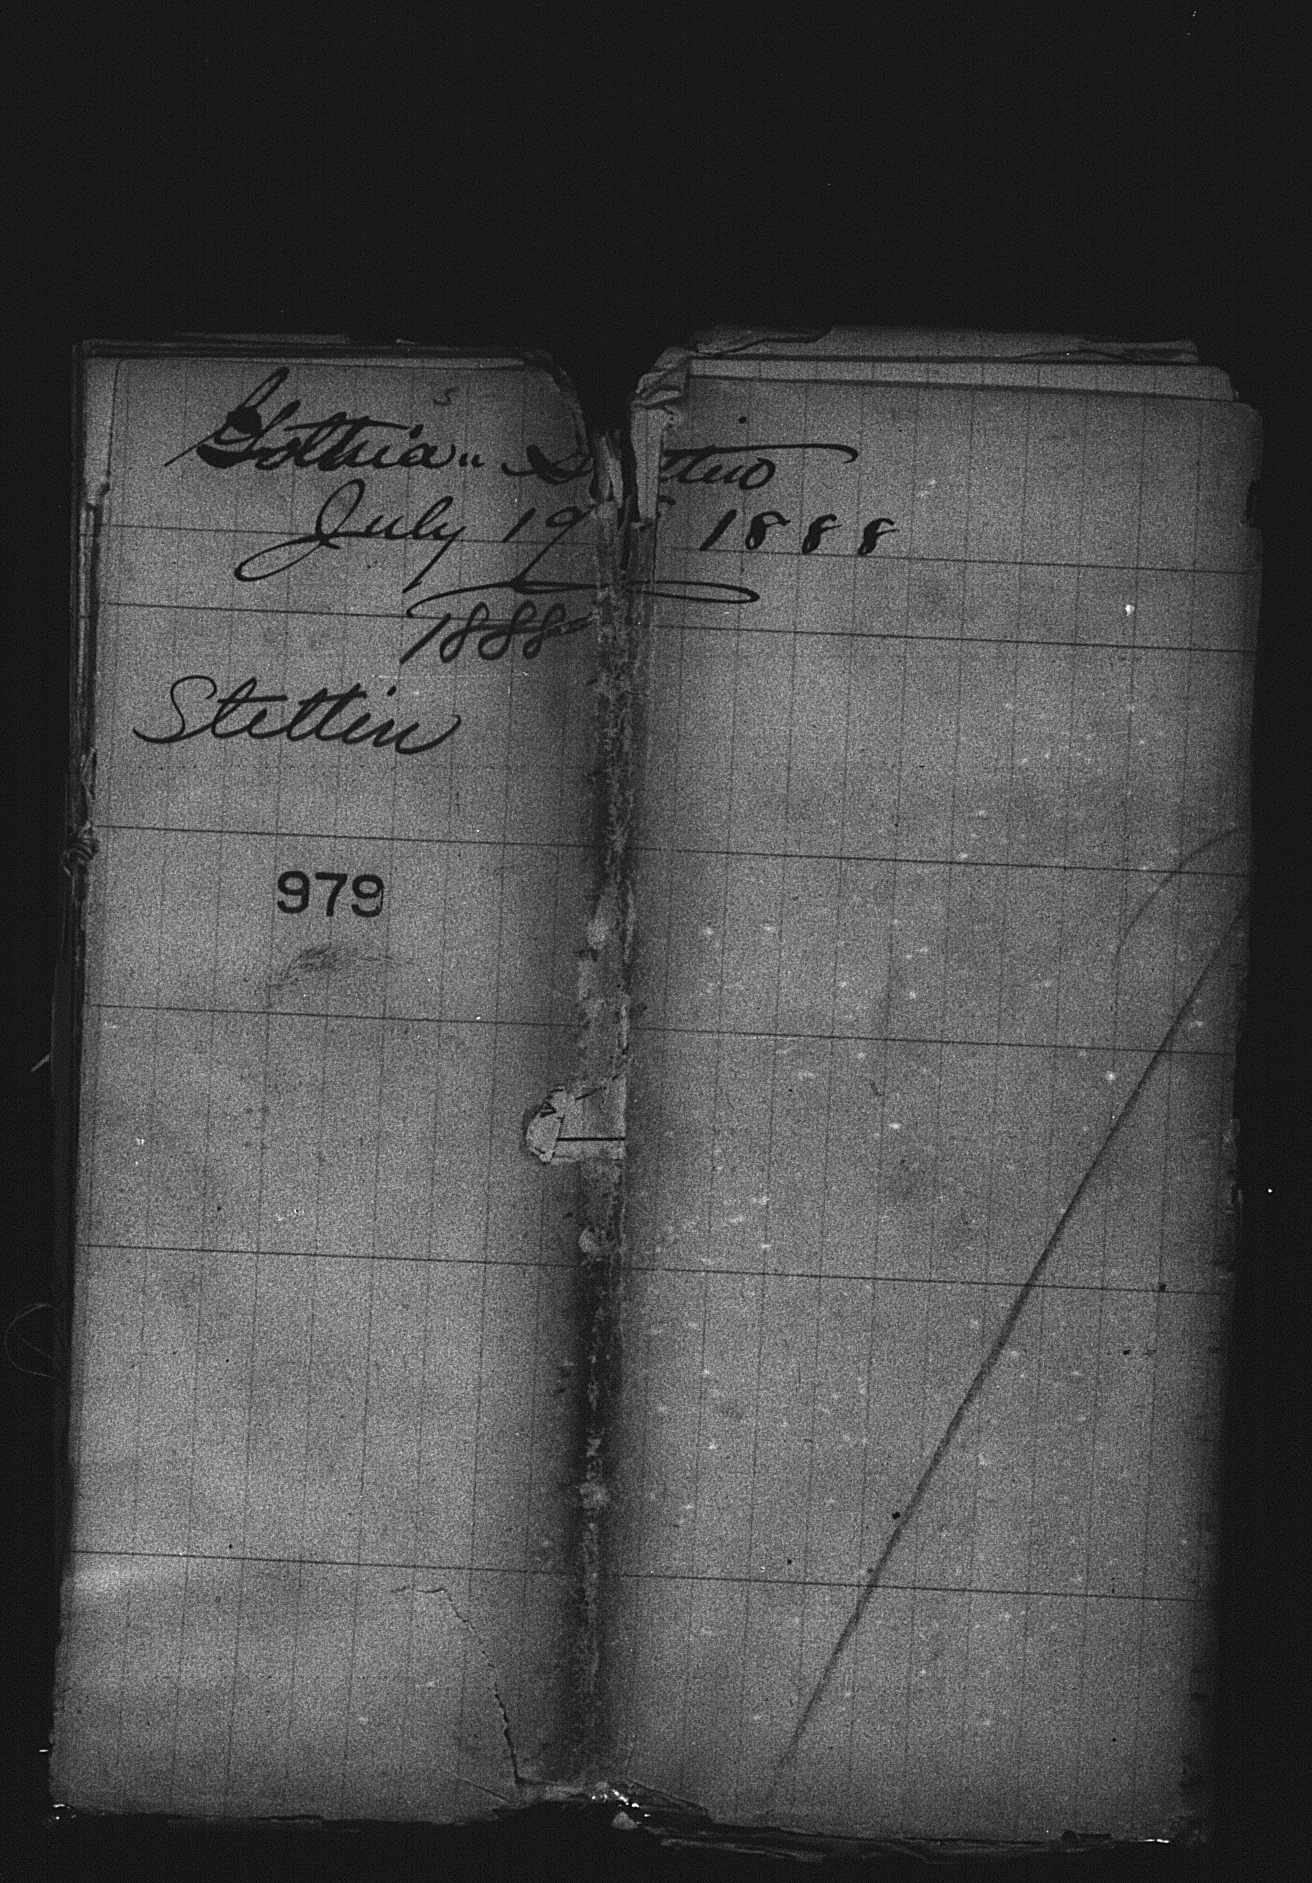 s
Gothia" Stettin
July 19th 1888
1888
Stettin
979